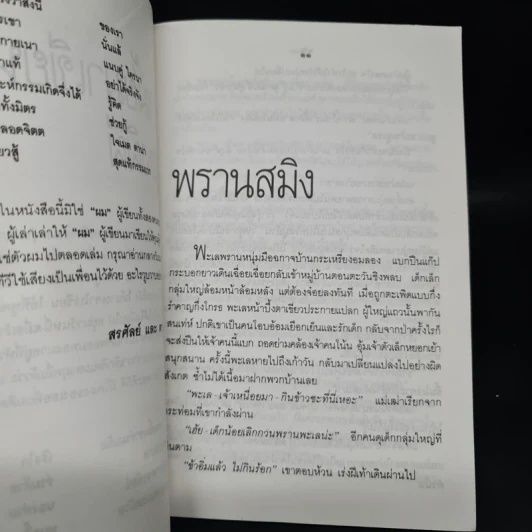 ของเรา
กายเนา นั่นแล้
อย่าได้จริงจัง
ะห์กรรมเกิดจึ่งได้ รู้คิด
ทั้งมิตร ช่วยกู้
ลอดจิตต
สุดแท้กรรมเวร
ในหนังสือนี้มิใช่ "ผม" ผู้เขียนทั้งสอง
ผู้เล่าเล่าให้ "ผม" ผู้เขียนมาเขียนให้
ใช่ตัวผมไปตลอดเล่ม กรุณาอ่าน
ทีวีใช้เสียงเป็นเพื่อนไว้ด้วย
สรศัลย์ และ
๑๑
พรานสมิง
พะเลพรานหนุ่มมือฉกาจบ้านกระเหรี่ยงอมลอง แบกปืนแก๊ป
กระบอกยาวเดินเฉื่อยเชื่อยกลับเข้าหมู่บ้านตอนตะวันชิงพลบ เด็กเล็ก
กลุ่มใหญ่ล้อมหน้าล้อมหลัง แต่ต้องจ๋อยลงทันที เมื่อถูกตะเพิดแบบกึ่ง
รำคาญกึ่งโกรธ พะเลหน้าบึ้งตาเขียวประกายแปลก ผู้ใหญ่แถวนั้นพากัน
สนเท่ห์ ปกติเขาเป็นคนโอบอ้อมเยือกเย็นและรักเด็ก กลับจากป่าครั้งไรก็
จะส่งปืนให้เจ้าคนนี้แบก ถอดย่ามคล้องเจ้าคนโน้น อุ้มเจ้าตัวเล็กหยอกเย้า
สนุกสนาน ครั้งนี้พะเลหายไปถึงเก้าวัน กลับมาเปลี่ยนแปลงไปอย่างผิด
สังเกต ซ้ำไม่ได้เนื้อมาฝากพวกบ้านเลย
"พะเล - เจ้าเหนื่อยมา - กินข้าวซะที่นี่เหอะ" แม่เฒ่าเรียกจาก
กระท่อมที่เขากำลังผ่าน
"เฮ้ย - เด็กน้อยเลิกกวนพรานพะเลน่ะ" อีกคนดุเด็กกลุ่มใหญ่ที่
เดินตาม
"ข้าอิ่มแล้ว ไม่กินร้อก" เขาตอบห้วน เร่งฝีเท้าเดินผ่านไป